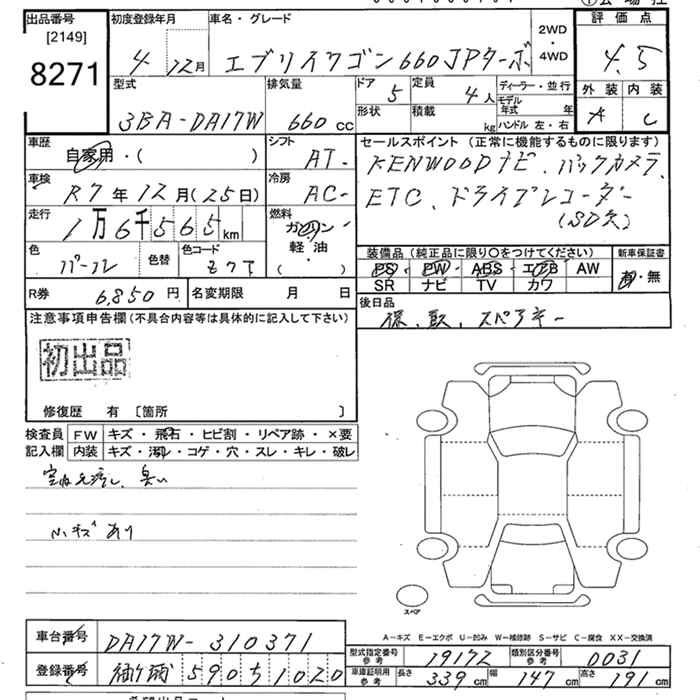 出品番号
[2149]
8271
初度登録年月
4 12月
車名・グレード
エブリイワゴン 660 JPターボ
2WD
・
4WD
評価点
4.5
外装 内装
A C
型式
3BA-DA17W
排気量
660 cc
ドア
5
定員
4人
形状
積載
kg
ディーラー・並行
モデル年式 年
ハンドル 左・右
車歴
自家用・( )
シフト
AT-
セールスポイント (正常に機能するものに限ります)
KENWOODナビ、バックカメラ、
ETC、ドライブレコーダー
(SD欠)
車検
R7年12月(25日)
冷房
AC-
走行
1万6千565km
燃料
ガソリン
軽油
( ・ )
色
パール
色替
色コード
装備品 (純正品に限り○をつけてください)
PS・PW・ABS・エアB AW
SR ナビ TV カワ
新車保証書
有・無
R券
6,850円
名変期限 月 日
後日品
保、取、スペアキー
注意事項申告欄(不具合内容等は具体的に記入して下さい)
初出品
修復歴 有 [箇所 ]
検査員
記入欄
FW キズ・飛石・ヒビ割・リペア跡・×要
内装 キズ・汚レ・コゲ・穴・スレ・キレ・破レ
小キズあり
スペア
車台番号
DA17W-310371
登録番号
590 5 1020
A-キズ E-エクボ U-凹み W-補修跡 S-サビ C-腐食 XX-交換済
型式指定番号
参考
19172
類別区分番号
参考
0031
車庫証明用
参考
長さ 339cm 幅 147cm 高さ 191cm